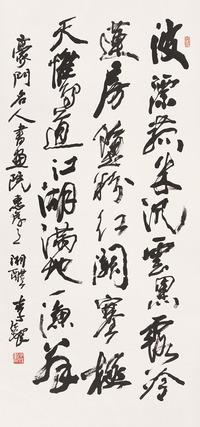 波漂菰米沉雲黑露冷
蓮房墜粉红關塞極
天惟鳥道江湖滿地一漁翁
豪門名人書畫院惠存 湘醴 李